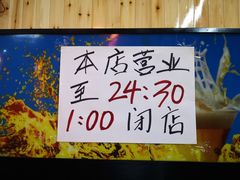 本店营业
至24:30
1:00闭店